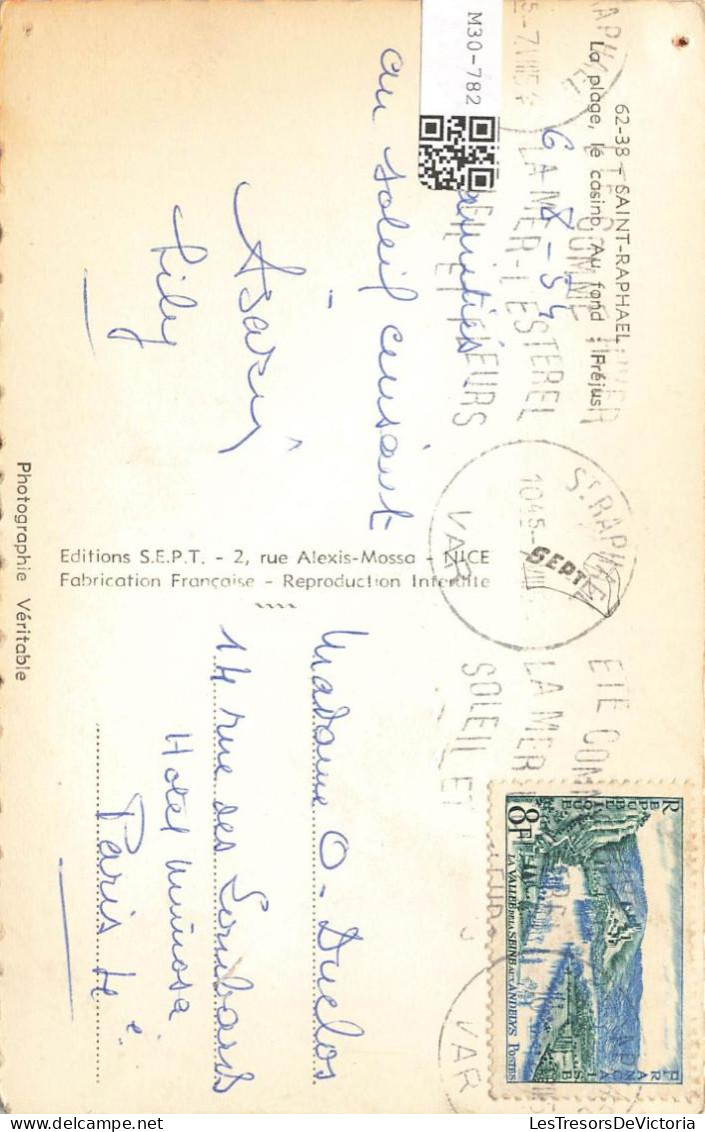 62-38 - SAINT-RAPHAEL
La plage, le casino. Au fond : Fréjus
M30-782
6-8-54
amitiés
au soleil cuisant
Lily
Photographie Véritable
Editions S.E.P.T. - 2, rue Alexis-Mossa - NICE
Fabrication Française - Reproduction Interdite
SEPT
ST RAPHAEL
1045
VAR
ETE COMME HIVER
LA MER-L'ESTEREL
SOLEIL ET FLEURS
Madame O. Duclos
14 rue des
Hotel Mimosa
Paris 4e
8F
LA VALLEE DE LA SEINE AUX ANDELYS POSTES
REPUBLIQUE FRANÇAISE
LesTresorsDeVictoria